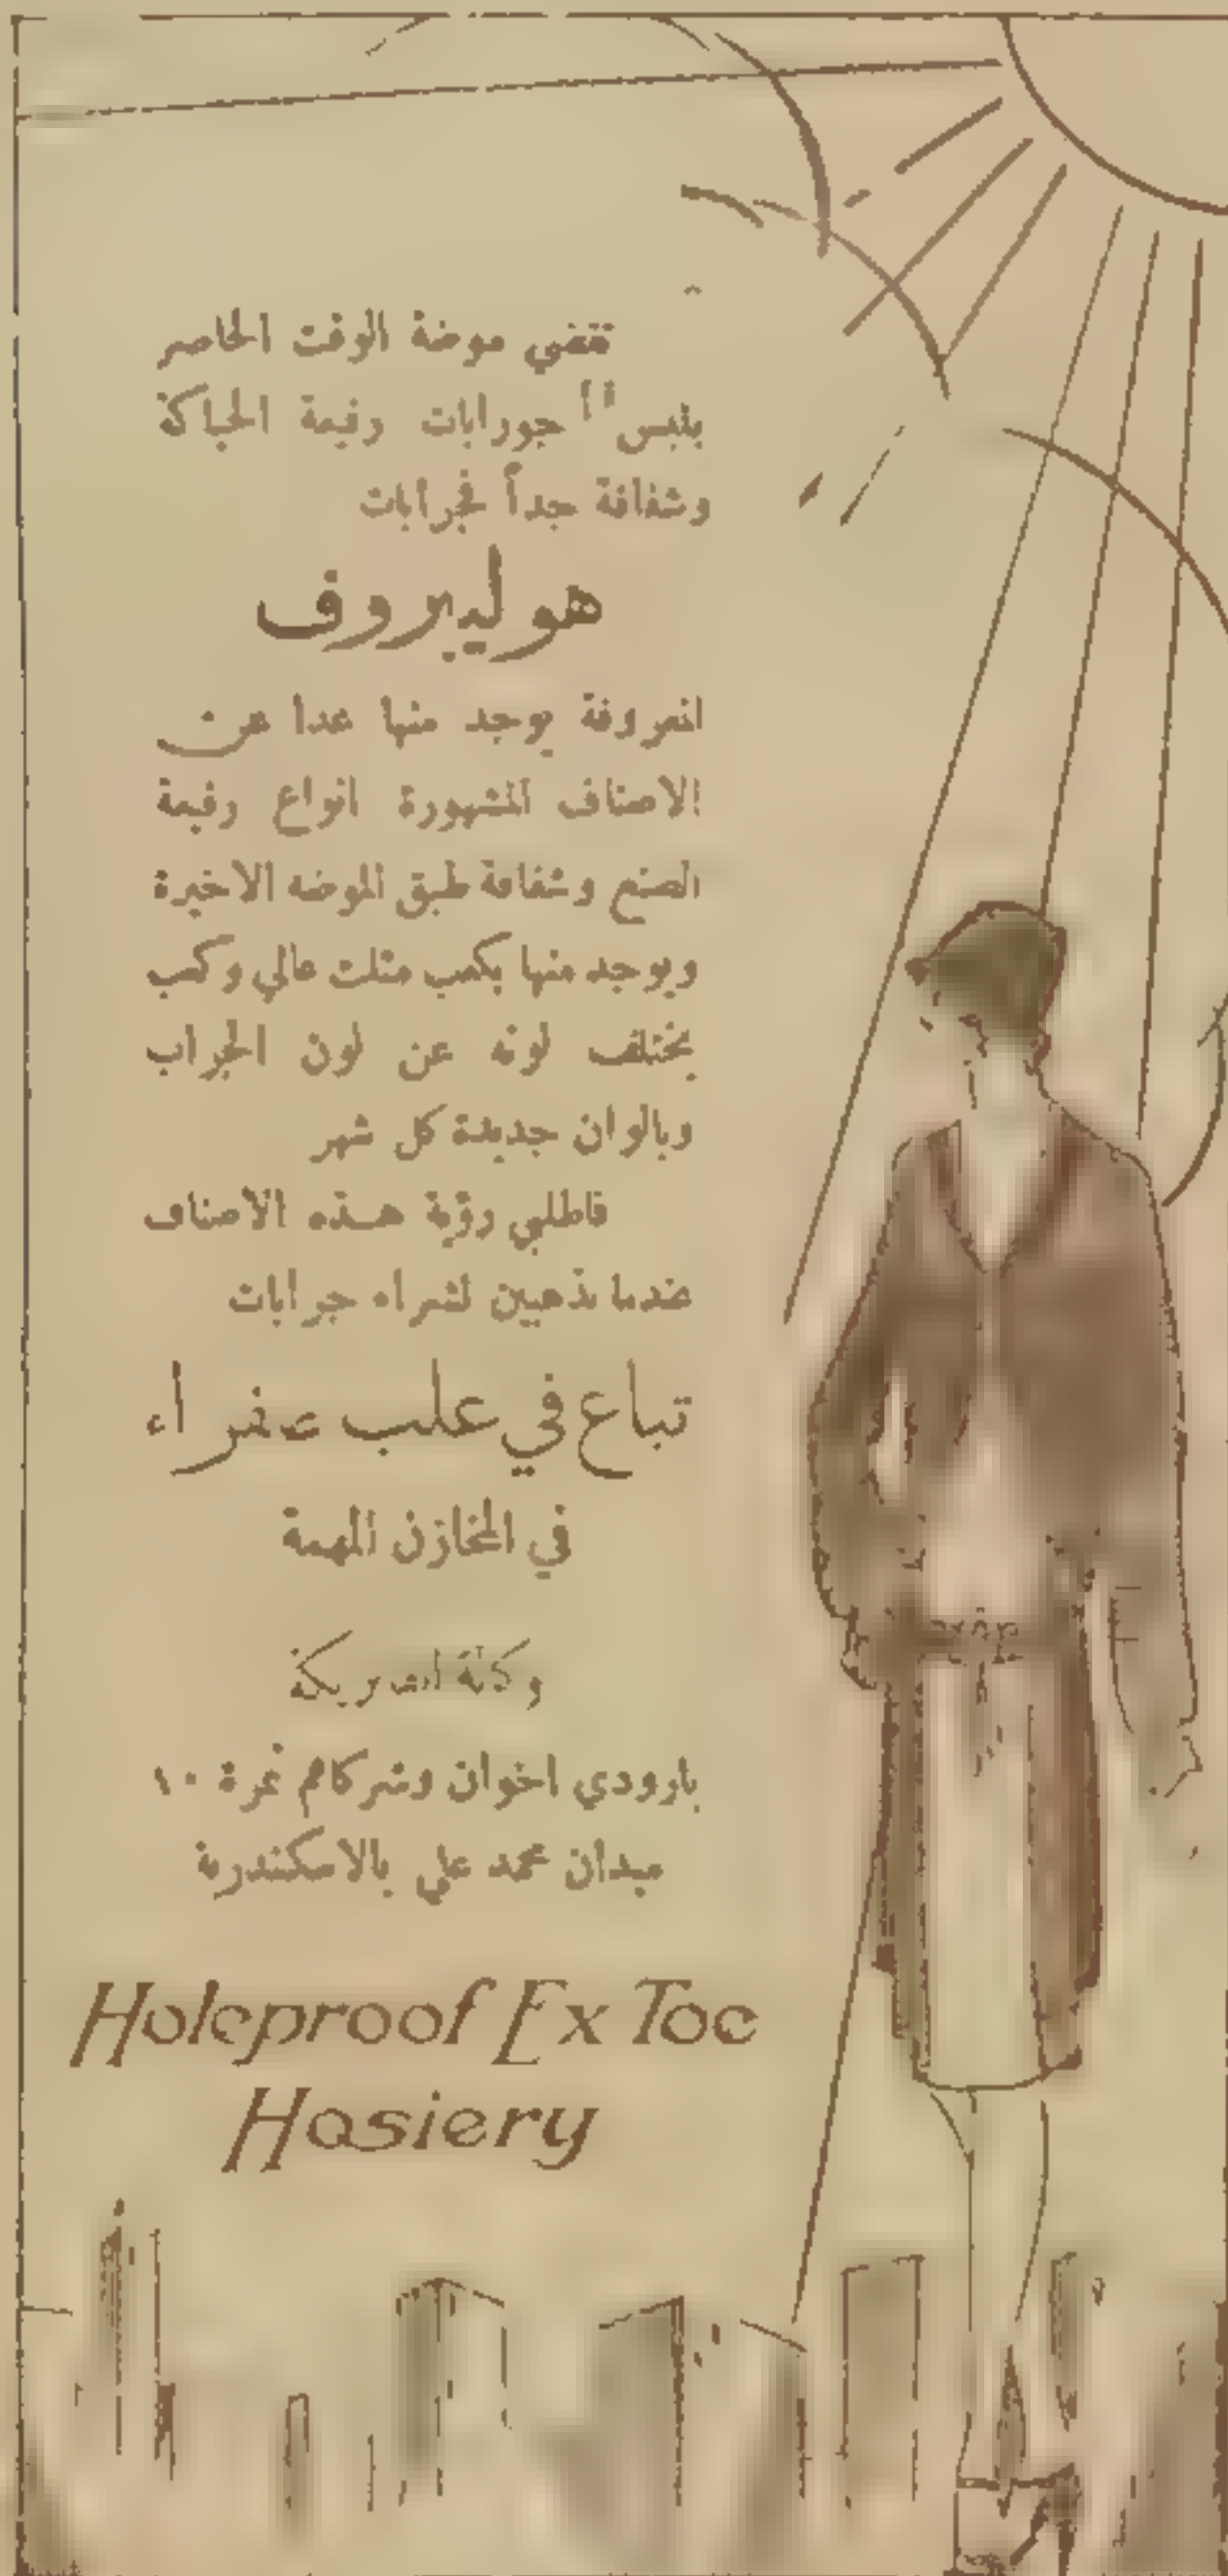 تقضي موضة الوقت الحاضر
بلبس جورابات رفيعة الحياكة
وشفافة جداً فجرابات
هوليبروف
المعروفة يوجد منها عدا عن
الاصناف المشهورة انواع رفيعة
الصنع وشفافة طبق الموضه الاخيرة
ويوجد منها بكعب مثلث عالي وكعب
يختلف لونه عن لون الجراب
وبالوان جديدة كل شهر
فاطلبي رؤية هـذه الاصناف
عندما تذهبين لشراء جرابات
تباع في علب صفراء
في المخازن المهمة
بارودي اخوان وشركاهم نمرة ١٠
ميدان محمد علي بالاسكندرية
Holeproof Ex Toe
Hosiery